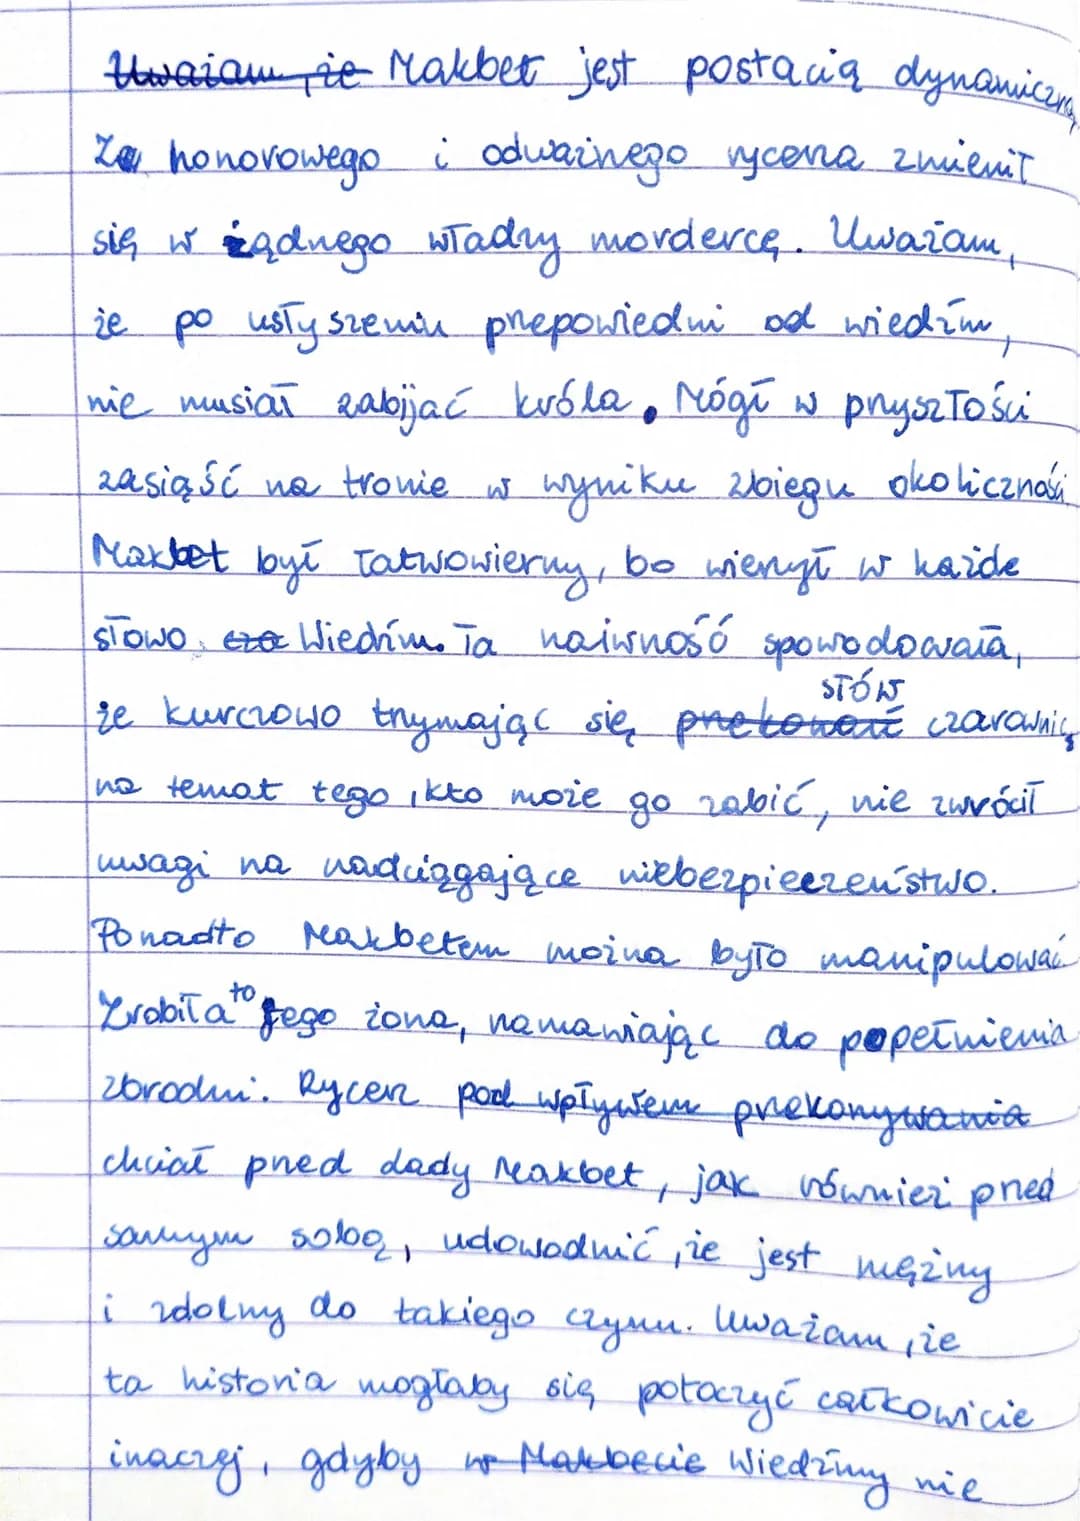 ~~Uważam, że~~ Makbet jest postacią dynamiczną
Za honorowego i odważnego rycerza zmienił
się w żądnego władzy mordercę. Uważam,
że po usłyszeniu przepowiedni od wiedźm,
nie musiał zabijać króla. Mógł w przyszłości
zasiąść na tronie w wyniku zbiegu okoliczności
Makbet był łatwowierny, bo wierzył w każde
słowo ~~cza~~ Wiedźm. Ta naiwność spowodowała,
słów
że kurczowo trzymając się ~~przekonań~~ czarownic
na temat tego, kto może go zabić, nie zwrócił
uwagi na nadciągające niebezpieczeństwo.
Ponadto Makbetem można było manipulować
Zrobiła to jego żona, namawiając do popełnienia
zbrodni. Rycerz pod wpływem przekonywania
chciał przed lady Makbet, jak również przed
samym sobą, udowodnić, że jest mężny
i zdolny do takiego czynu. Uważam, że
ta historia mogłaby się potoczyć całkowicie
inaczej, gdyby ~~w Makbecie~~ Wiedźmy nie